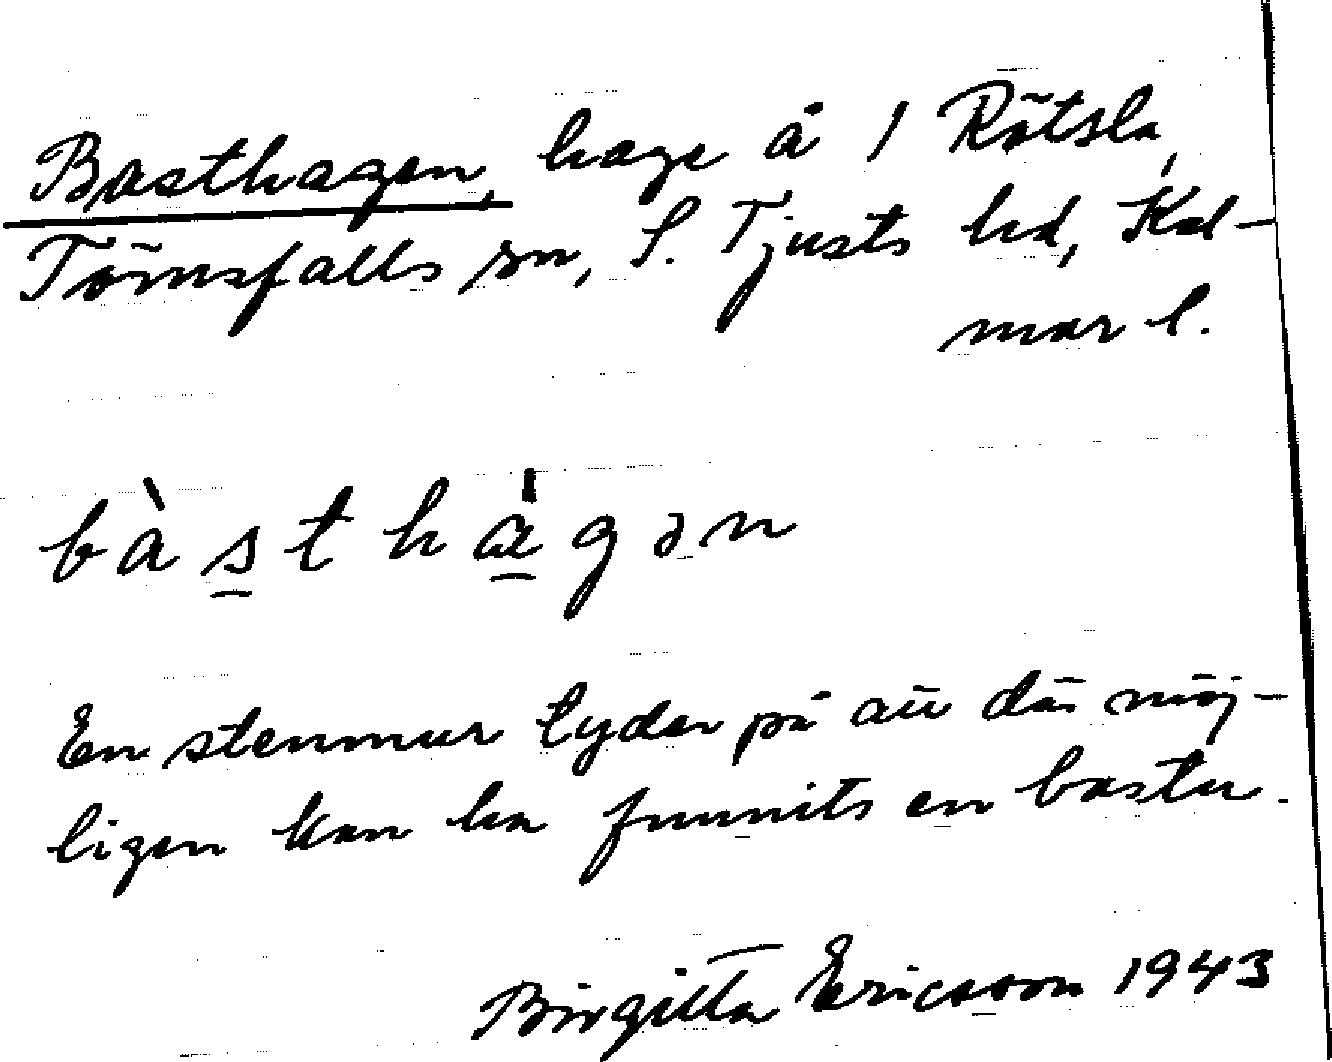 Basthagen, hage å 1 Rötsla,
Törnsfalls sn, S. Tjusts hd, Kal-
mar l.
bàsthágən
En stenmur tyder på att där möj-
ligen kan ha funnits en bastu.
Birgitta Ericsson 1943